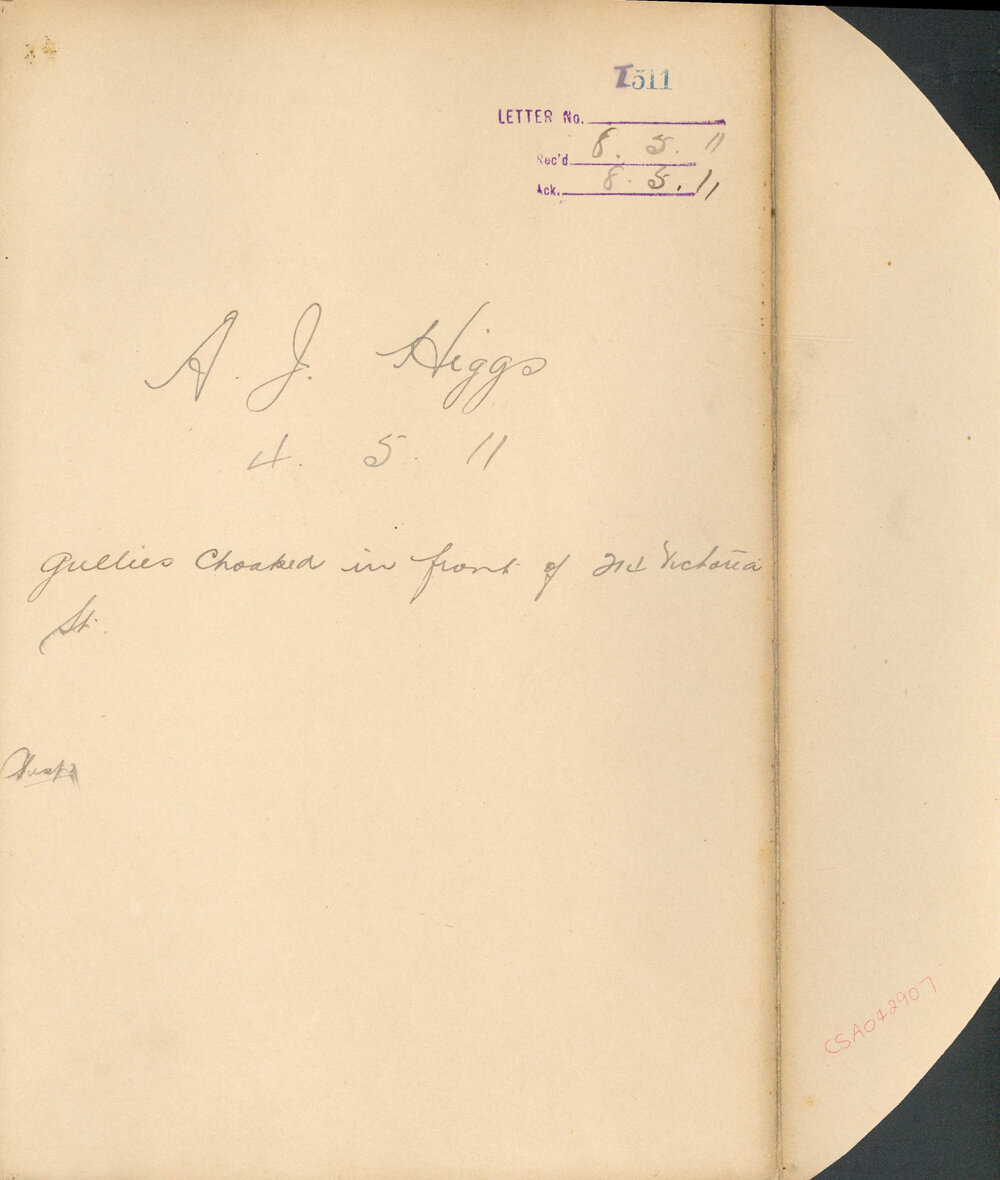 I511
LETTER No.
Rec'd 8. 5. 11
Ack. 8. 5. 11
A. J. Higgs
4. 5. 11
Gullies Choaked in front of 214 Victoria
St.
CSA042907